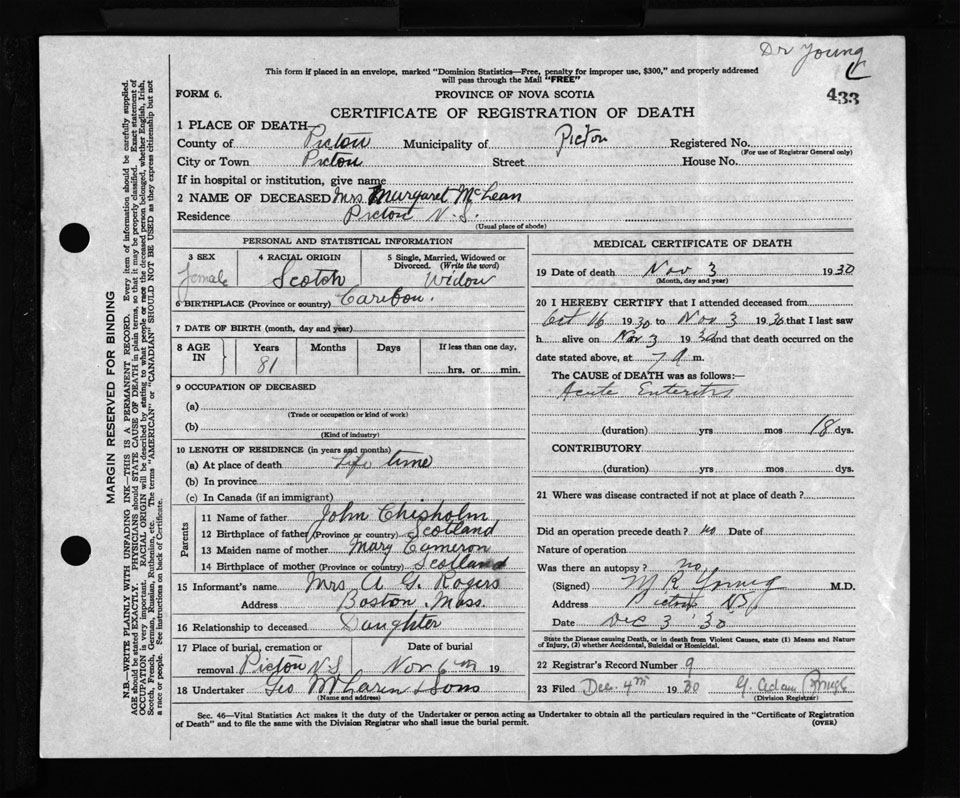 Dr Young
C
This form if placed in an envelope, marked "Dominion Statistics—Free, penalty for improper use, $300," and properly addressed
will pass through the Mail "FREE"
FORM 6.
PROVINCE OF NOVA SCOTIA
433
CERTIFICATE OF REGISTRATION OF DEATH
1 PLACE OF DEATH—
County of Pictou Municipality of Pictou Registered No.
(For use of Registrar General only)
City or Town Pictou Street House No.
If in hospital or institution, give name
2 NAME OF DECEASED Mrs Margaret McLean
Residence Pictou N.S.
(Usual place of abode)
PERSONAL AND STATISTICAL INFORMATION
3 SEX
female
4 RACIAL ORIGIN
Scotch
5 Single, Married, Widowed or
Divorced. (Write the word)
Widow
6 BIRTHPLACE (Province or country) Caribou.
7 DATE OF BIRTH (month, day and year)
8 AGE
IN
Years
81
Months
Days
If less than one day,
hrs. or min.
9 OCCUPATION OF DECEASED
(a)
(Trade or occupation or kind of work)
(b)
(Kind of industry)
10 LENGTH OF RESIDENCE (in years and months)
(a) At place of death Life time
(b) In province
(c) In Canada (if an immigrant)
Parents
11 Name of father John Chisholm
12 Birthplace of father (Province or country) Scotland
13 Maiden name of mother Mary Cameron
14 Birthplace of mother (Province or country) Scotland
15 Informant's name Mrs A G. Rogers
Address Boston Mass.
16 Relationship to deceased Daughter
17 Place of burial, cremation or Date of burial
removal Pictou N.S Nov 6th 19
18 Undertaker Geo McLaren & Sons
(Name and address)
MEDICAL CERTIFICATE OF DEATH
19 Date of death Nov 3 1930
(Month, day and year)
20 I HEREBY CERTIFY that I attended deceased from
Oct 16 1930 to Nov 3 1930 that I last saw
h alive on Nov 3 1930 and that death occurred on the
date stated above, at 7 a m.
The CAUSE of DEATH was as follows:—
Acute Enteritis
(duration) yrs mos 18 dys.
CONTRIBUTORY
(duration) yrs mos dys.
21 Where was disease contracted if not at place of death?
Did an operation precede death? no Date of
Nature of operation
Was there an autopsy? no
(Signed) M R Young M.D.
Address Pictou NS
Date Dec 3 '30
State the Disease causing Death, or in death from Violent Causes, state (1) Means and Nature
of Injury, (2) whether Accidental, Suicidal or Homicidal.
22 Registrar's Record Number 9
23 Filed Dec. 4th 1930 G. Adam
(Division Registrar)
Sec. 46—Vital Statistics Act makes it the duty of the Undertaker or person acting as Undertaker to obtain all the particulars required in the "Certificate of Registration
of Death" and to file the same with the Division Registrar who shall issue the burial permit.
(OVER)
MARGIN RESERVED FOR BINDING
N.B.—WRITE PLAINLY WITH UNFADING INK—THIS IS A PERMANENT RECORD. Every item of information should be carefully supplied.
AGE should be stated EXACTLY. PHYSICIANS should STATE CAUSE OF DEATH in plain terms, so that it may be properly classified. Exact statement of
OCCUPATION is very important. RACIAL ORIGIN will be described by stating to what people or race the deceased person belonged, whether English, Irish,
Scotch, French, German, Russian, Ruthenian, etc. The terms "AMERICAN" or "CANADIAN" SHOULD NOT BE USED as they express citizenship but not
a race or people. See instructions on back of Certificate.